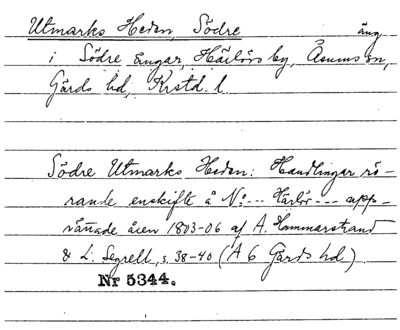 Utmarks Heden, Södre äng
i Södre ängar, Härlövs by, Åsums sn,
Gärds hd, Krstd. l.
Södre Utmarks Heden: Handlingar rö-
rande enskifte å No --- Härlöv --- upp-
rättade åren 1803-06 af A. Hammarstrand
& L. Segrell, s. 38-40 (A 6 Gärds hd).
Nr 5344.